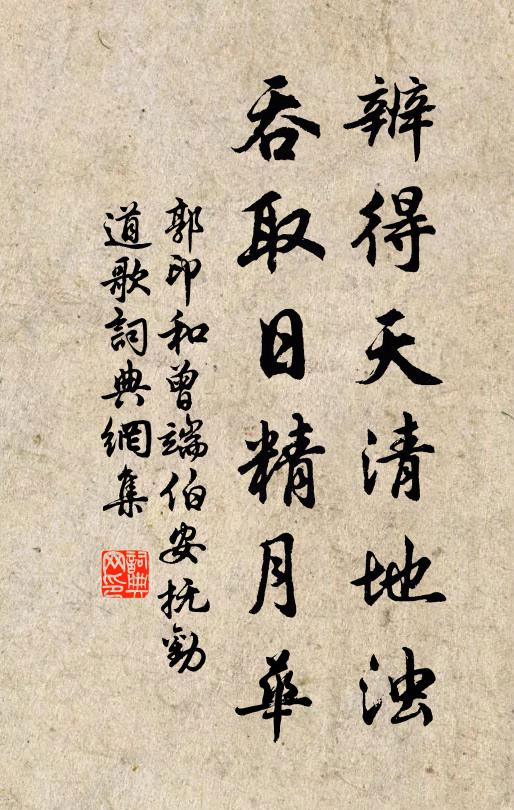 辨得天清地浊
吞取日精月華
郭印和曾端伯安抚勸
道歌詞典網集
詞典
网印